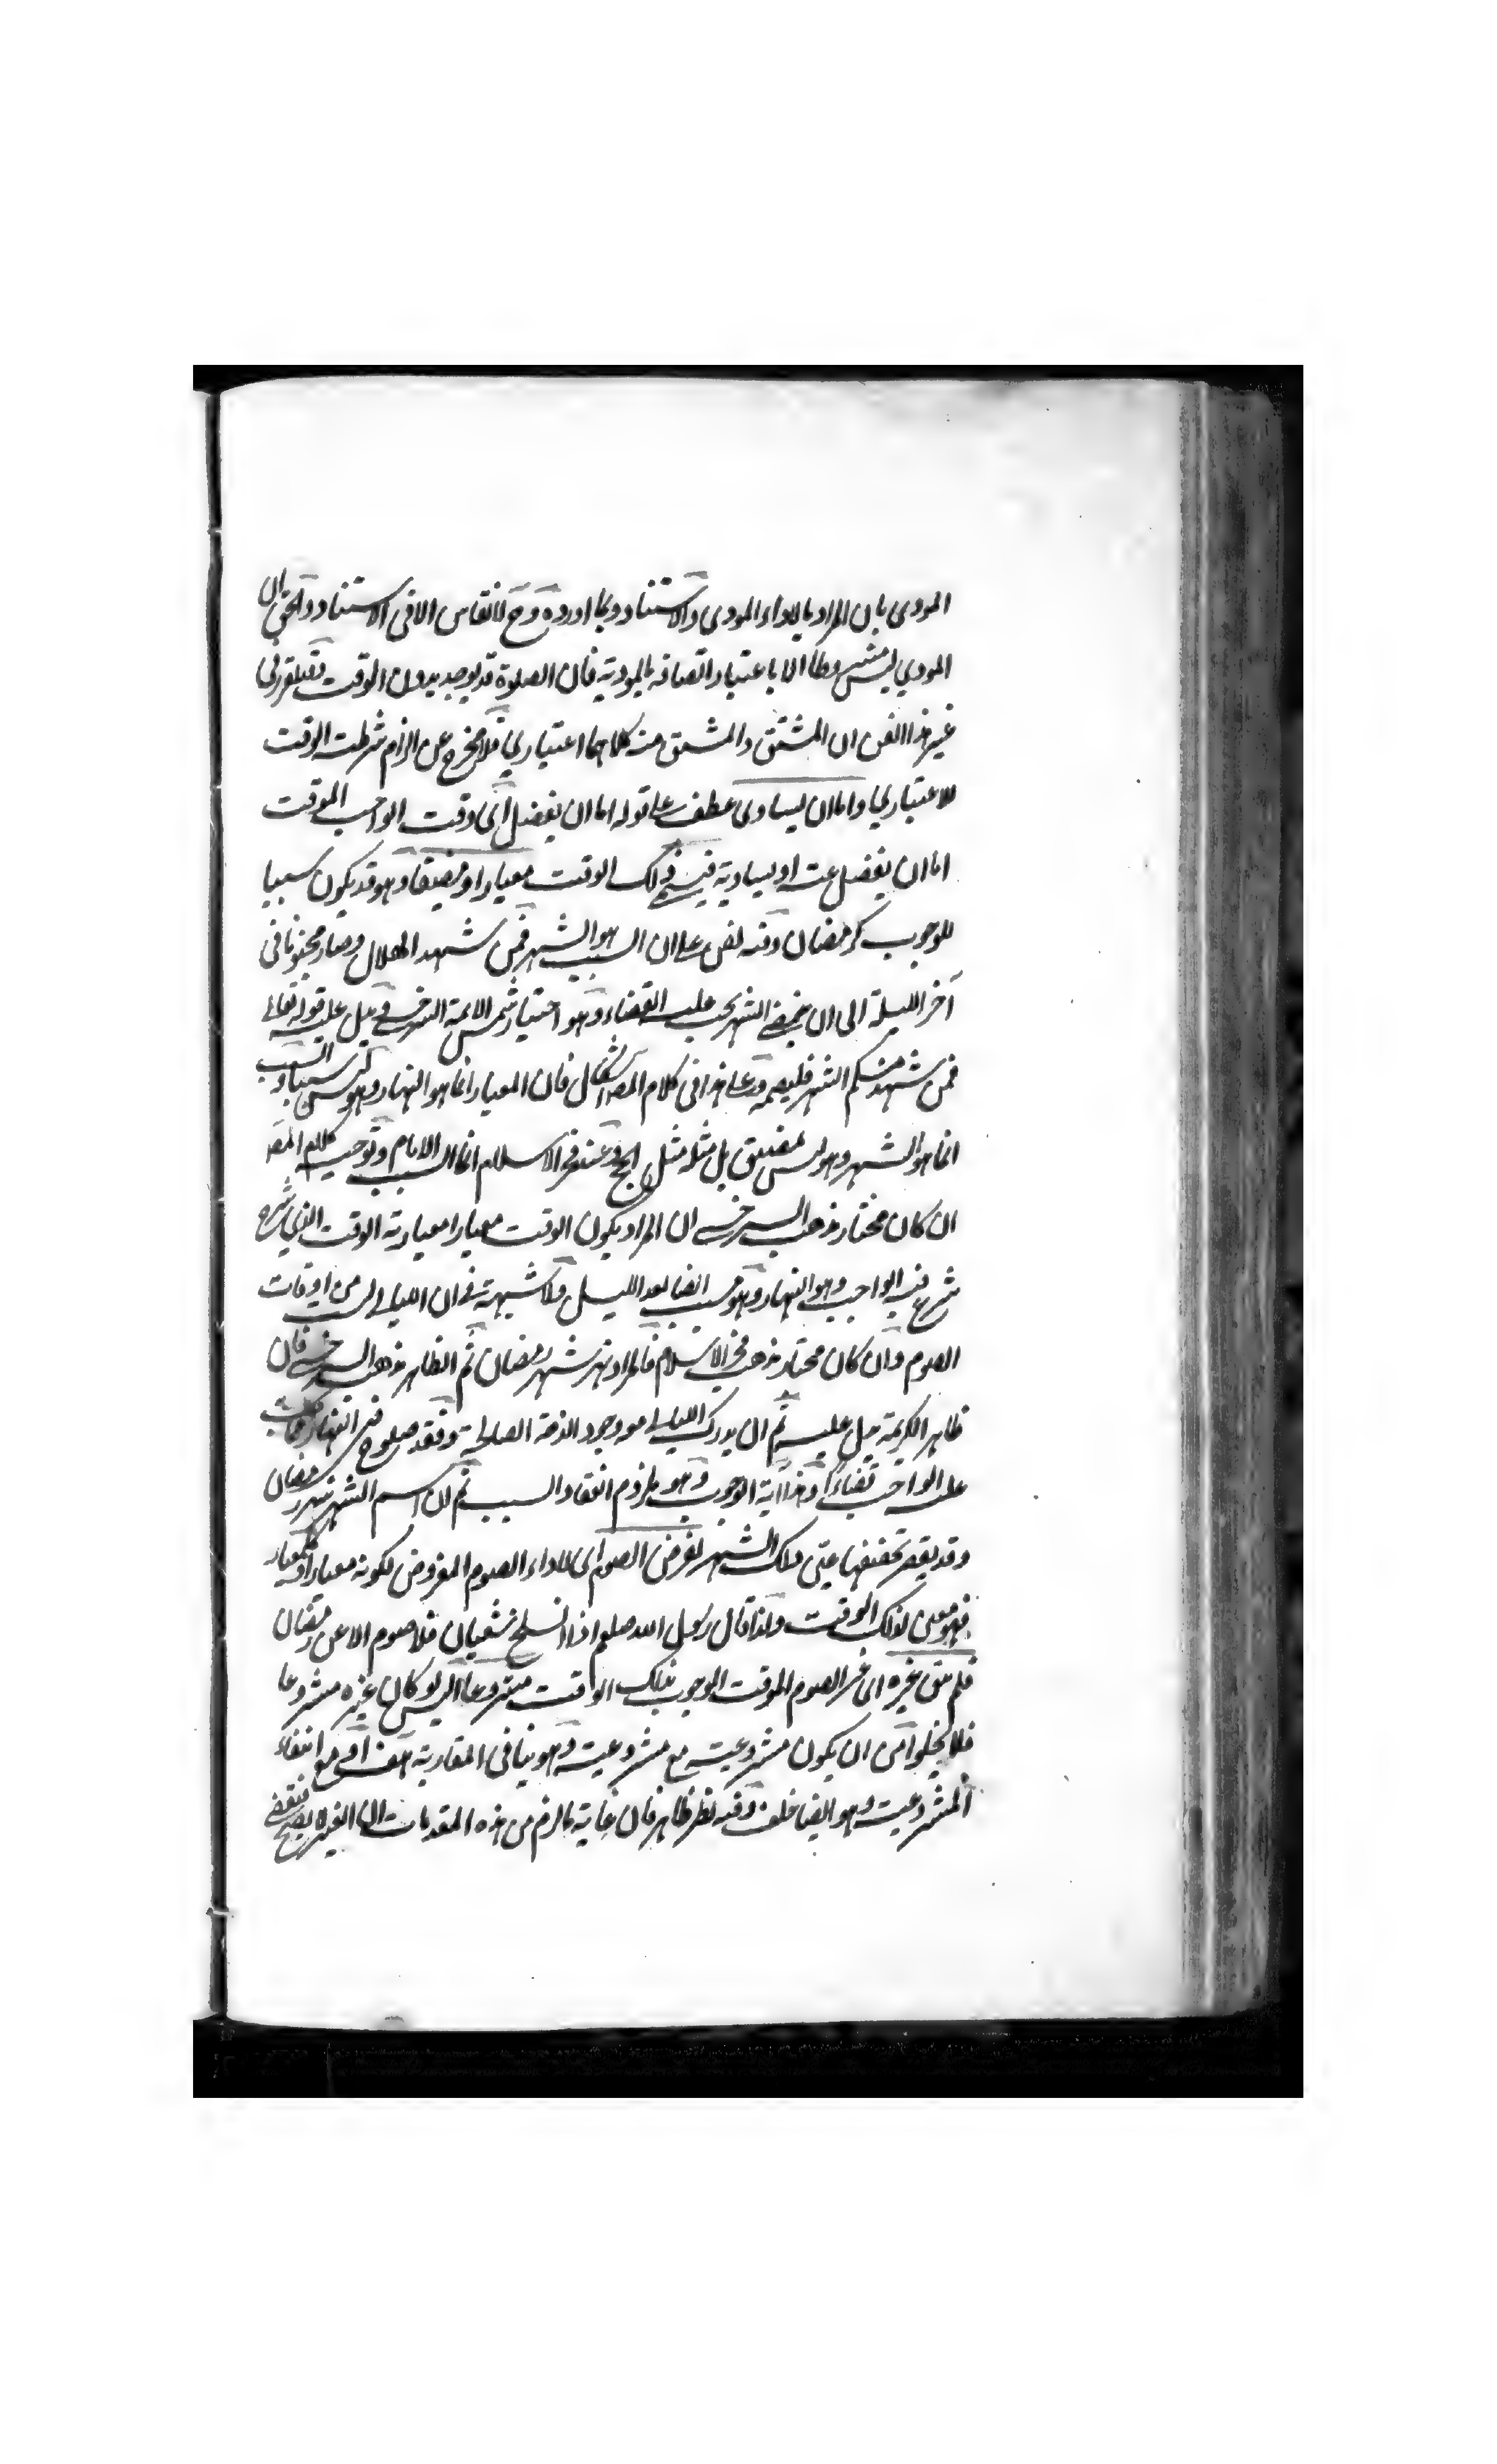 المودى بان المراد بالاداء المودى والاستناد وبما اورده وح لا نقاس الا فى الاستناد والحق ان
المودي ليس مشروطا الا باعتبار اتصافه بالمودية فان الصلوة قد يوجد بدون الوقت وقد تقرر فى
غير هذا الفن ان المشتق والمشتق منه كلاهما اعتباري فلا مخرج عن الزام شرطية الوقت
للاعتباري واما ان يساوى عطف على قوله اما ان يفضل اى وقت الواجب الموقت
اما ان يفضل عنه او يساويه فيسمى ذلك الوقت معيارا ومضيقا وهو قد يكون سببا
للوجوب كرمضان وفيه نص على ان السبب هو الشهر فمن شهد الهلال وصار مجنونا فى
آخر الليلة الى ان يمضى الشهر يجب عليه القضاء وهو اختيار شمس الائمة السرخسى ويدل عليه قوله تعالى
فمن شهد منكم الشهر فليصمه وعلى هذا فى كلام المصـ اشكال فان المعيار انما هو النهار وهو ليس سببا والسبب
انما هو الشهر وهو ليس بمضيق بل مثله مثل الحج وعند فخر الاسلام انما السبب الايام وتوجيه كلام المصـ
ان كان مختار مذهب السرخسى ان المراد بكون الوقت معيارا معيارية الوقت الذي شرع
شرع فيه الواجب وهو النهار وهو مسبب ايضا بعد الليل ولا شبهة فى ان الليالى ليست من اوقات
الصوم وان كان مختار مذهب فخر الاسلام فالمراد نهر شهر رمضان ثم الظاهر مذهب السرخسى فان
ظاهر الكريمة يدل عليه ثم ان يدرك الليالى مع وجود الذمة الصالحة وفقد صلوح فى النهار
على الواجب قضاءً وهذا آية الوجوب وهو ملزوم انعقاد السبب ثم ان اسم الشهر شهر رمضان
وقد يقع تخفيفها عين ذلك الشهر لفرض الصوم اى لاداء الصوم المفروض لكونه معيارا له
فهو معين لذلك الوقت ولذا قال رسول الله صلعم اذا انسلخ شعبان فلا صوم الا عن رمضان
فلم يبق غيره اى غير الصوم الموقت الوجوب بذلك الوقت مشروعا اذ لو كان غيره مشروعا
فلا يخلوا من ان يكون مشروعيته مع مشروعيته وهو ينافى المعيارية هف او مع انتفاء
المشروعية وهو ايضا خلف وفيه نظر ظاهر فان غاية ما لزم من هذه المقدمات ان الغير لا يصح